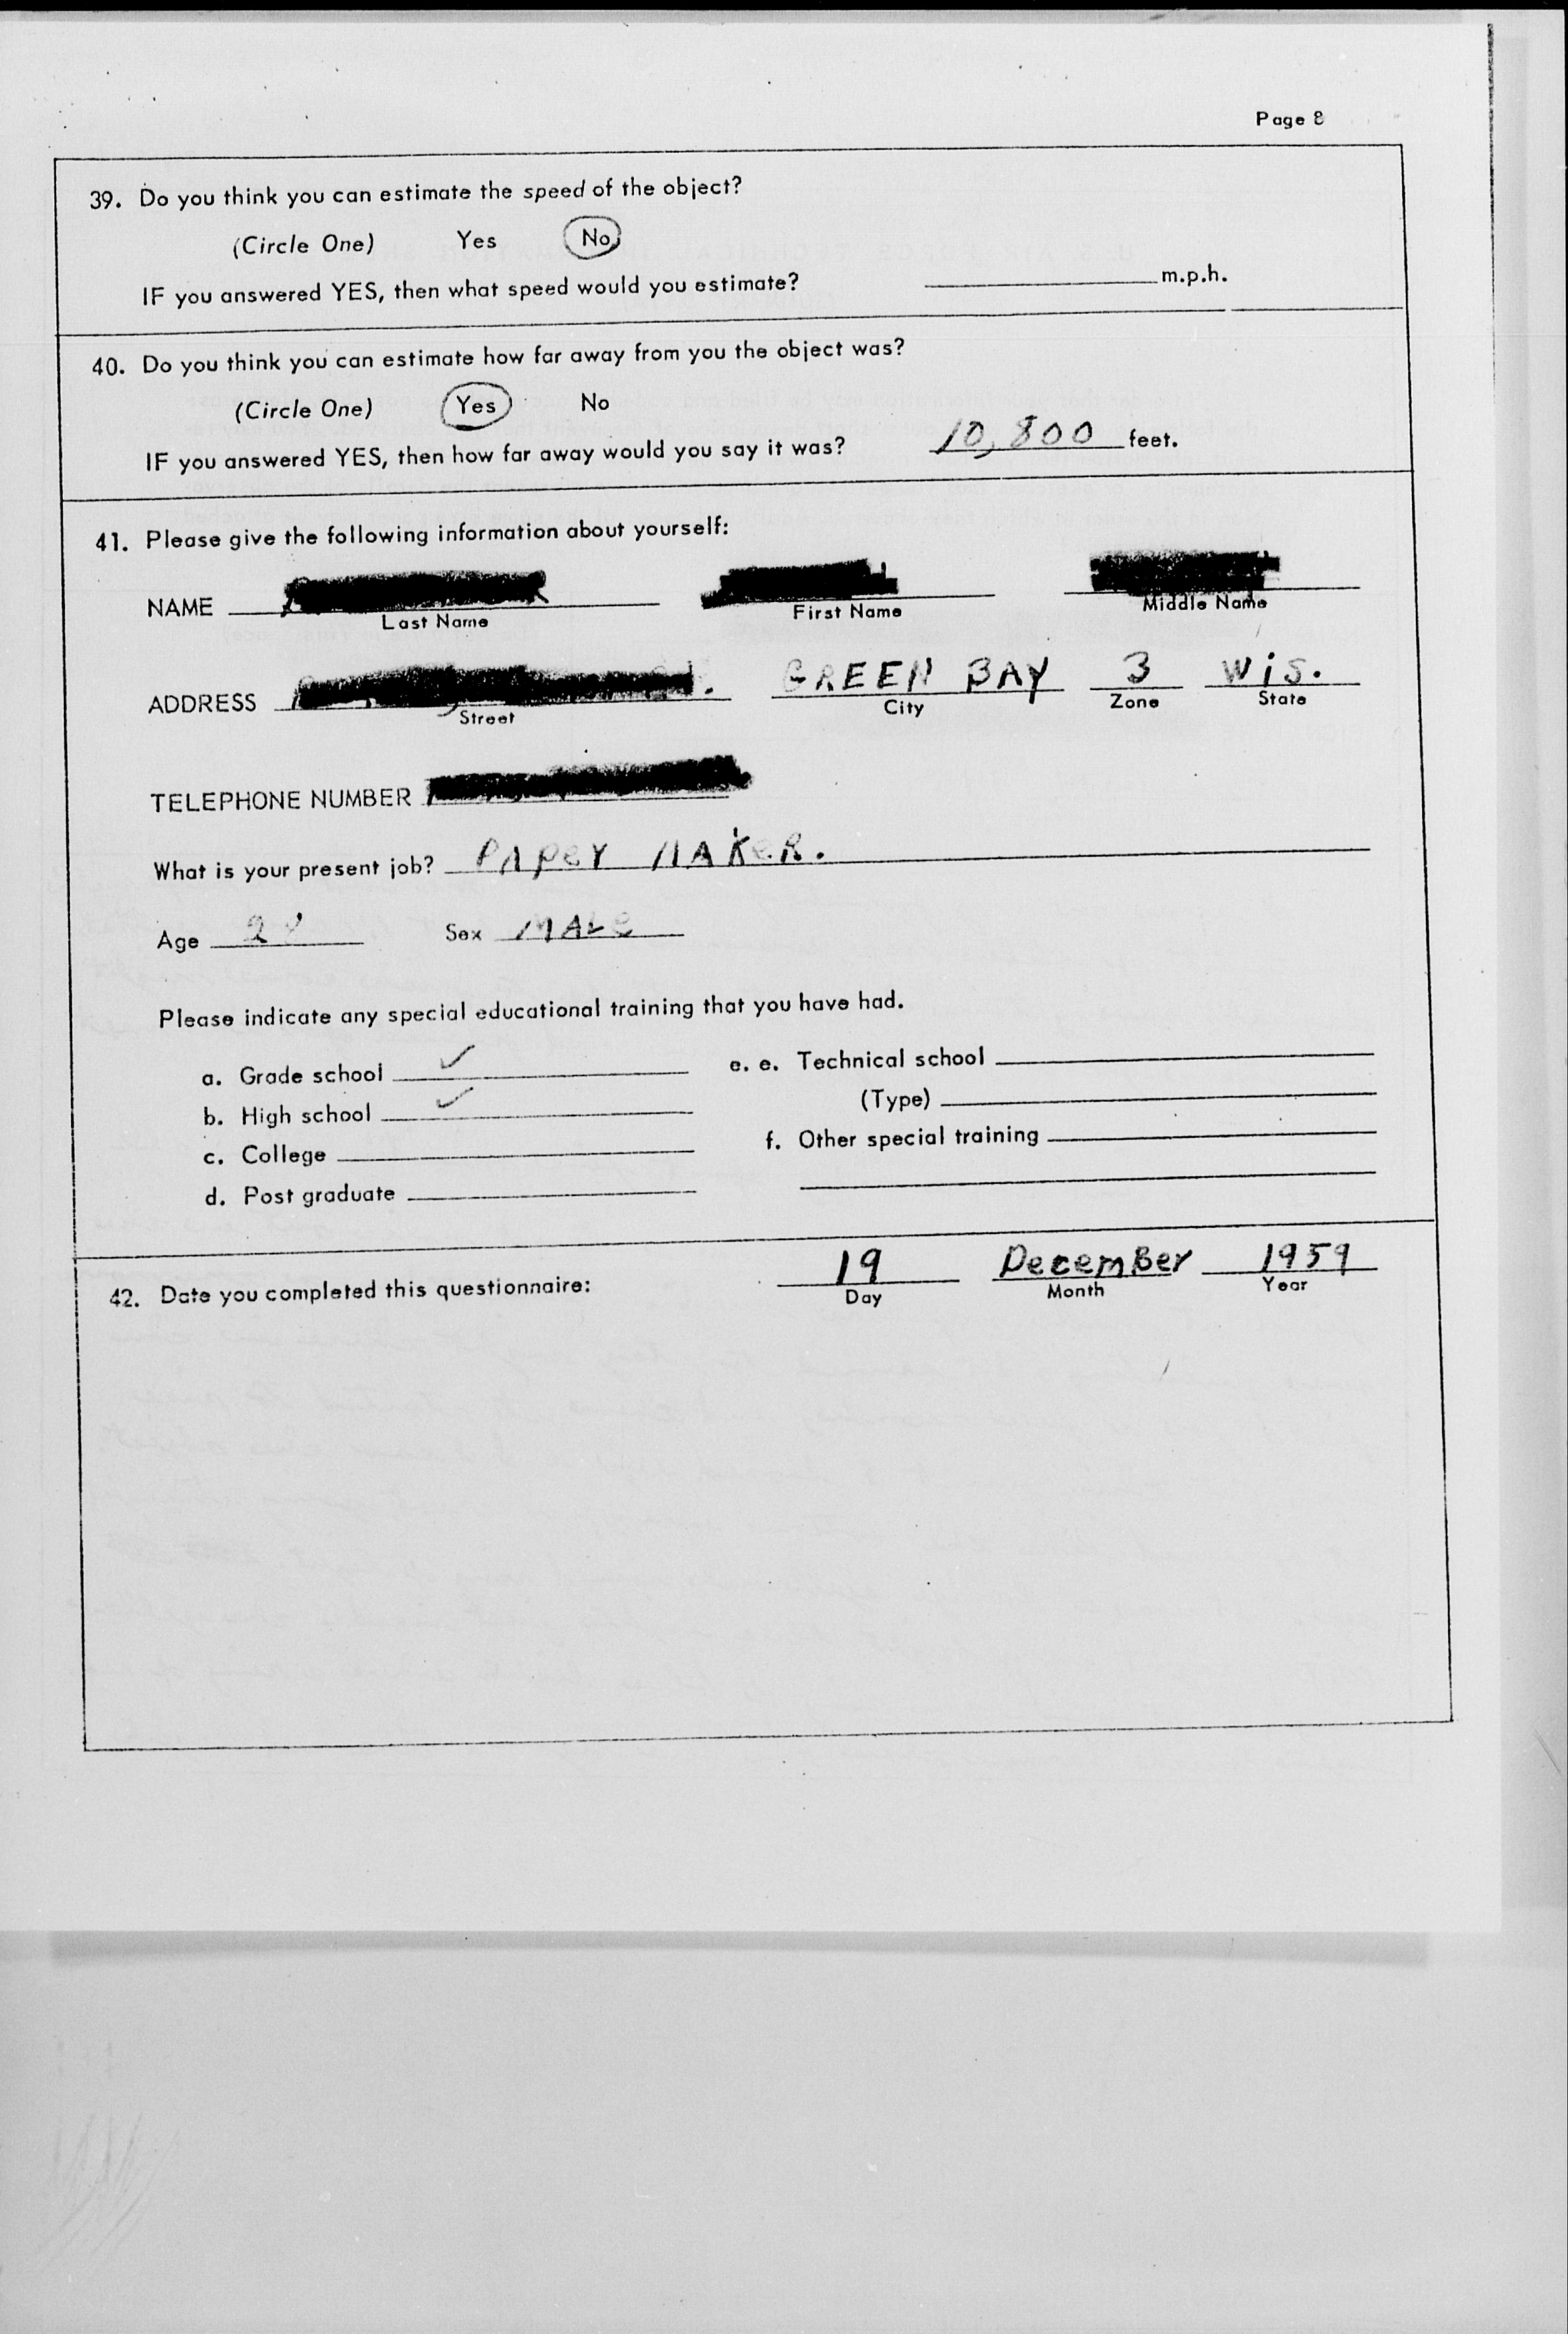 Page 8
39. Do you think you can estimate the speed of the object?
(Circle One) Yes No
IF you answered YES, then what speed would you estimate? m.p.h.
40. Do you think you can estimate how far away from you the object was?
(Circle One) Yes No
IF you answered YES, then how far away would you say it was? 10,800 feet.
41. Please give the following information about yourself:
NAME
Last Name First Name Middle Name
ADDRESS GREEN BAY 3 Wis.
Street City Zone State
TELEPHONE NUMBER
What is your present job? PAPeY MAKeR.
Age 28 Sex MALe
Please indicate any special educational training that you have had.
a. Grade school ✓ e. e. Technical school
b. High school ✓ (Type)
c. College f. Other special training
d. Post graduate
42. Date you completed this questionnaire: 19 DecemBer 1959
Day Month Year